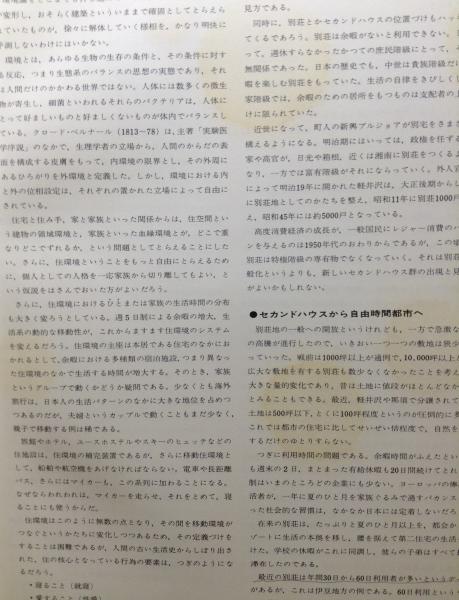 が変形し、おそらく建築といういままで確固としてとらえら
れていたものが、徐々に解体していく様相を、かなり明快に
予測しないわけにはいかない。
環境とは、あらゆる生物の生存の条件と、その条件に対す
る反応、つまり生態系のバランスの思想の実態であり、それ
は人間だけのかかわる世界ではない。人体には数多くの微生
物が寄生し、細菌といわれるそれらのバクテリアは、人体に
とって好ましいものと好ましくないものが体内でバランスし
ている。クロード・ベルナール(1813〜78)は、主著「実験医
学序説」のなかで、生理学者の立場から、人間のからだの表
面を構成する皮膚をもって、内環境の限界とし、その外周に
あるひろがりを外環境と定義した。しかし、環境における内
と外の位相設定は、それぞれの置かれた立場によって自由に
されている。
住宅と住み手、家と家族といった関係からは、住空間とい
う建物の領域環境と、家族といった血縁環境とが、どこで重
なりどこでずれるか、という問題としてとらえることにした
い。さらに、住環境ということをもっと自由にとらえるため
に、個人としての人格を一応家族から切り離してもよい、と
いう仮説をはさんでおいた方がよいだろう。
さらに、住環境におけるひとまたは家族の生活時間の分布
も大きく変ろうとしている。週5日制による余暇の増大、生
活系の動的な移動性が、これからますます住環境のシステム
を変えるだろう。住環境の主座は本居である住宅のなかにお
かれるとして、余暇における多種類の宿泊施設、つまり異なっ
た住環境のなかで生活する時間が増大する。そのとき、家族
というグループで動くかどうか疑問である。少なくとも海外
旅行は、日本人の生活パターンのなかに大きな地位を占めつ
つあるのだが、夫婦というカップルで動くこともまだ少なく、
親子で移動する例は稀である。
旅館やホテル、ユースホステルやスキーのヒュッテなどの
住施設は、住環境の補完装置であるが、さらに移動住環境と
して、船舶や航空機をあげなければならない。電車や長距離
バス、さらにはマイカーも、この系列に加わることになる。
なぜならわれわれは、マイカーを走らせ、それをとめて、寝
ることにも使うからだ。
住環境はこのように無数の点となり、その間を移動環境が
つなぐというかたちに変化しつつあるため、その定義づけを
することは困難であるが、人間の古い生活史からしぼり出さ
れた、住の核心となっている行為の要素は、つぎのようにな
るだろう。
・寝ること(就寝)
・愛すること(性愛)
見方である。
同時に、別荘とかセカンドハウスの位置づけもハッ
てくるであろう。別荘は余暇がないと利用できない。
って、週休すらなかったかつての庶民階級にとって、
無関係であった。日本の歴史でも、中世は貴族階級だけ
暇を楽しむ別荘をもっていた。生活の自律をきびしくし
家階級では、余暇のための居所をもつものは支配者の上
けに限られていた。
近世になって、町人の新興ブルジョアが別宅をさまざ
構えるようになる。明治期にはいっては、政権を任する
家や高官が、日光や箱根、近くは湘南に別荘をつくるよ
なり、一方では富有階級がそれにならっていく。外人宣
によって明治19年に開かれた軽井沢は、大正後期からし
に別荘地としてのかたちを整え、昭和11年に別荘1000戸
え、昭和45年には約5000戸となっている。
高度消費経済の成長が、一般国民にレジャー消費のパ
ンを与えるのは1950年代のおわりからであるが、この頃
別荘は特権階級の専有物でなくなっていく。それは別荘
般化というよりも、新しいセカンドハウス群の出現と見
がよいかもしれない。
●セカンドハウスから自由時間都市へ
別荘地の一般への開放というけれども、一方で急激な
の高騰が進行したので、いきおい一つ一つの敷地は狭少
っていった。戦前は1000坪以上が通例で、10,000坪以上
広大な敷地を有する別荘も数少なくなかったことを考え
大きな量的変化であり、昔は土地に値段がほとんどなか
とみることもできる。最近、軽井沢や那須で分譲されて
土地は500坪以下、とくに100坪程度というのが圧倒的に多
これでは都市の住宅に比してせいぜい倍程度で、自然を
するだけのゆとりすらない。
つぎに利用時間の問題である。余暇時間がふえたとい
も週末の2日、まとまった有給休暇も20日間続けてとれ
制はいまのところどの企業にも少ない。ヨーロッパの俸
活者が、一年に夏のひと月を家族ぐるみで過すバカンス
った社会的な習慣は、なかなか日本には定着しないだろ
在来の別荘は、たっぷりと夏のひと月以上を、都会か
ゾートに生活の本拠を移し、腰を据えて第二住宅の生活
けた。学校の休暇がこれに同調し、彼らの子弟はすべて
滞在したのである。
最近の別荘は年間30日から60日利用者が多いというデー
があるが、これは伊豆地方の例である。60日利用という